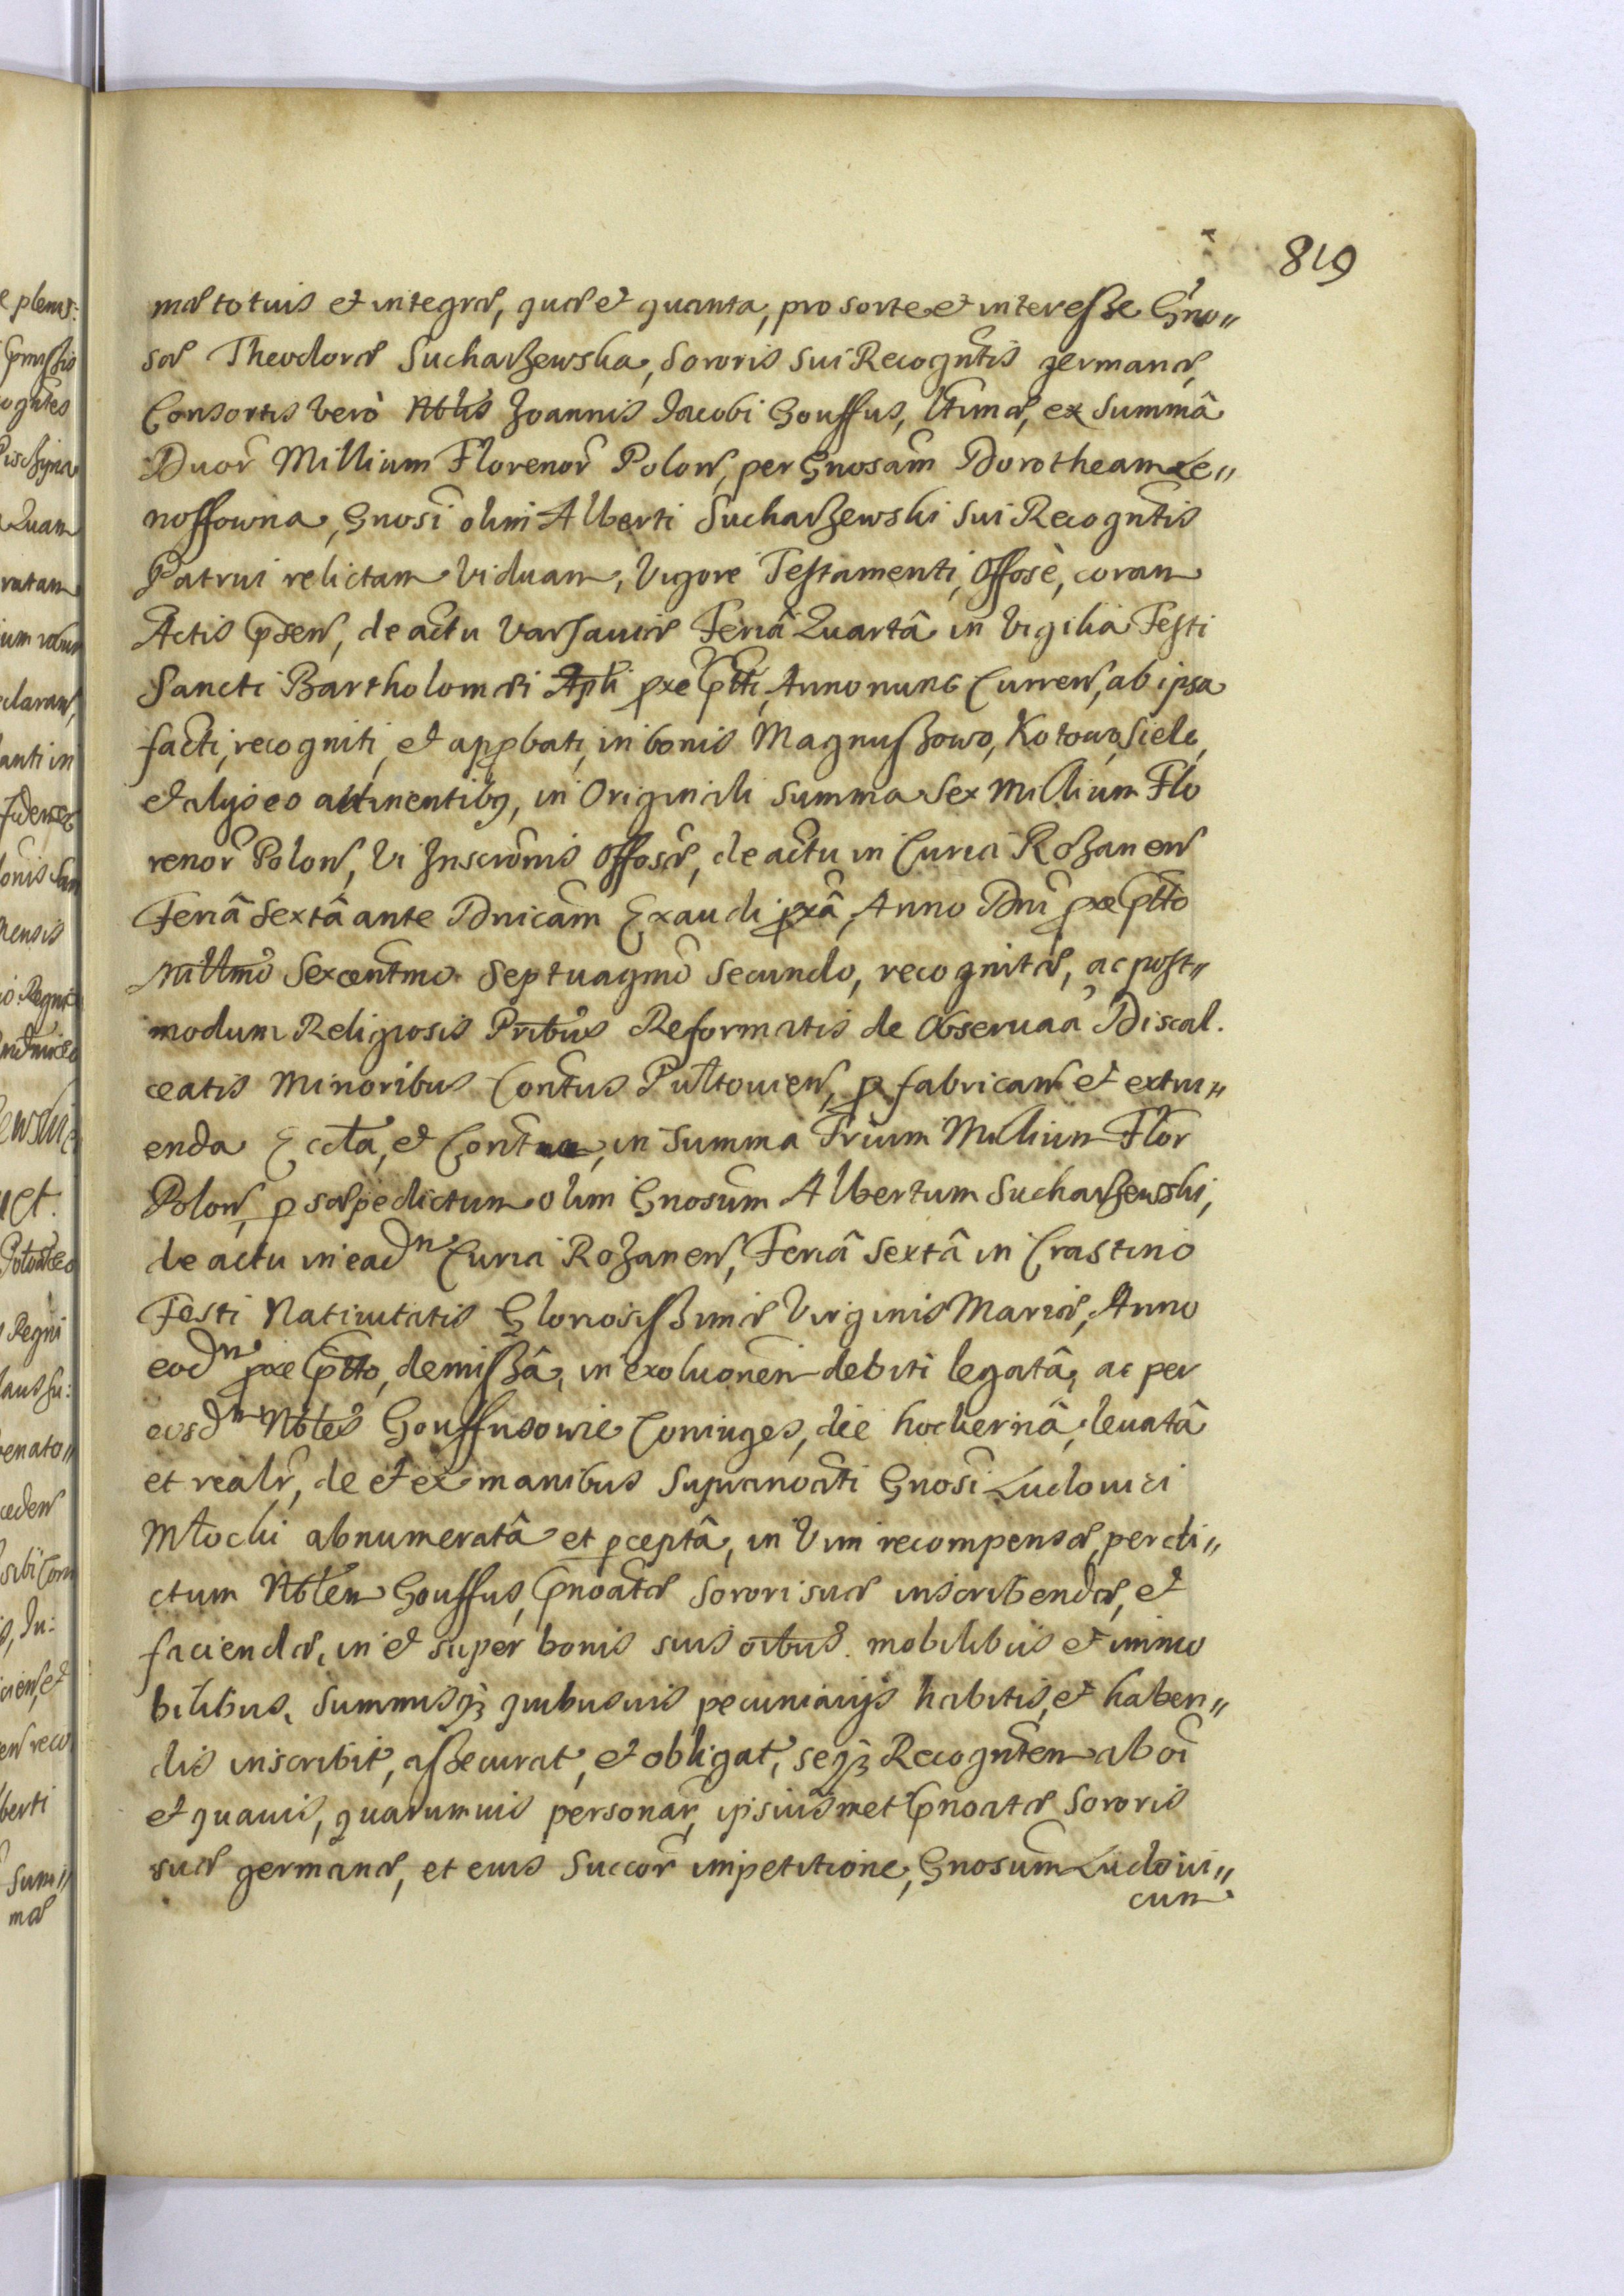 819
mæ totius et integræ, quæ et quanta, pro sorte et interesse Gno„
sæ Theodoræ Sucharzewska, Sororis sui Recogntis germanæ,
Consortis vero Nblis Joannis Jacobi Gouffus, ex Summâ
Duor Millium Florenor Polon, per Gnosam Dorotheam Le„
noffowna, Gnosi olim Alberti Sucharzewski sui Recogntis
Patrui relictam Viduam, Vigore Testamenti, Offosè, coram
Actis psen, de actu Varsaviæ Feriâ Quartâ in Vigilia Festi
Sancti Bartholomæi Apli pxe ptti, Anno nunc Curren, ab ipsa
facti, recogniti, et approbati, in bonis Magnuszowo, Kotowo, Siele,
et alijs eo attinentibg, in Originali Summa Sex Millium Flo
renor Polon, Vi Inscronis Offosæ, de actu in Curia Rozanen
Feriâ Sextâ ante Dnicam Exaudi pxâ, Anno Dni pxe ptto
Millmo Sexcentmo Septuagmo Secundo, recognitæ, ac post„
modum Religiosis Pribus Reformatis de Observaa Discal.
ceatis Minoribus Contus Pultovien, p fabrican et extru„
enda Eccla, et in Summa Trium Millium Flor
Polon, p sæpedictum olim Gnosum Albertum Sucharzewski,
de actu in eadm Curia Rozanen, Feriâ Sextâ in Crastino
Festi Nativitatis Gloriosissimæ Virginis Mariæ, Anno
eodm pxe ptto, demissâ, in exoluonem debiti legatâ, ac per
eosdm Nbles Gouffusowie Coniuges, die hodiernâ, levatâ
et realr, de et ex manibus Supranoati Gnosi Ludovici
Młocki abnumeratâ et pceptâ, in Vim recompensæ, per di„
ctum Nblem Gouffus, pnoatæ Sorori suæ inscribendæ, et
faciendæ, in et super bonis suis oibus mobilibus et immo
bilibus, Summisq3 quibusvis pecuniarijs habitis, et haben„
dis inscribit, assecurat, et obligat, seq3 Recogntem ab oi
et quavis, quarumvis personar, ipsiusmet pnoatæ Sororis
suæ germanæ, et eius Succor impetitione, Gnosum Ludovi„
cum